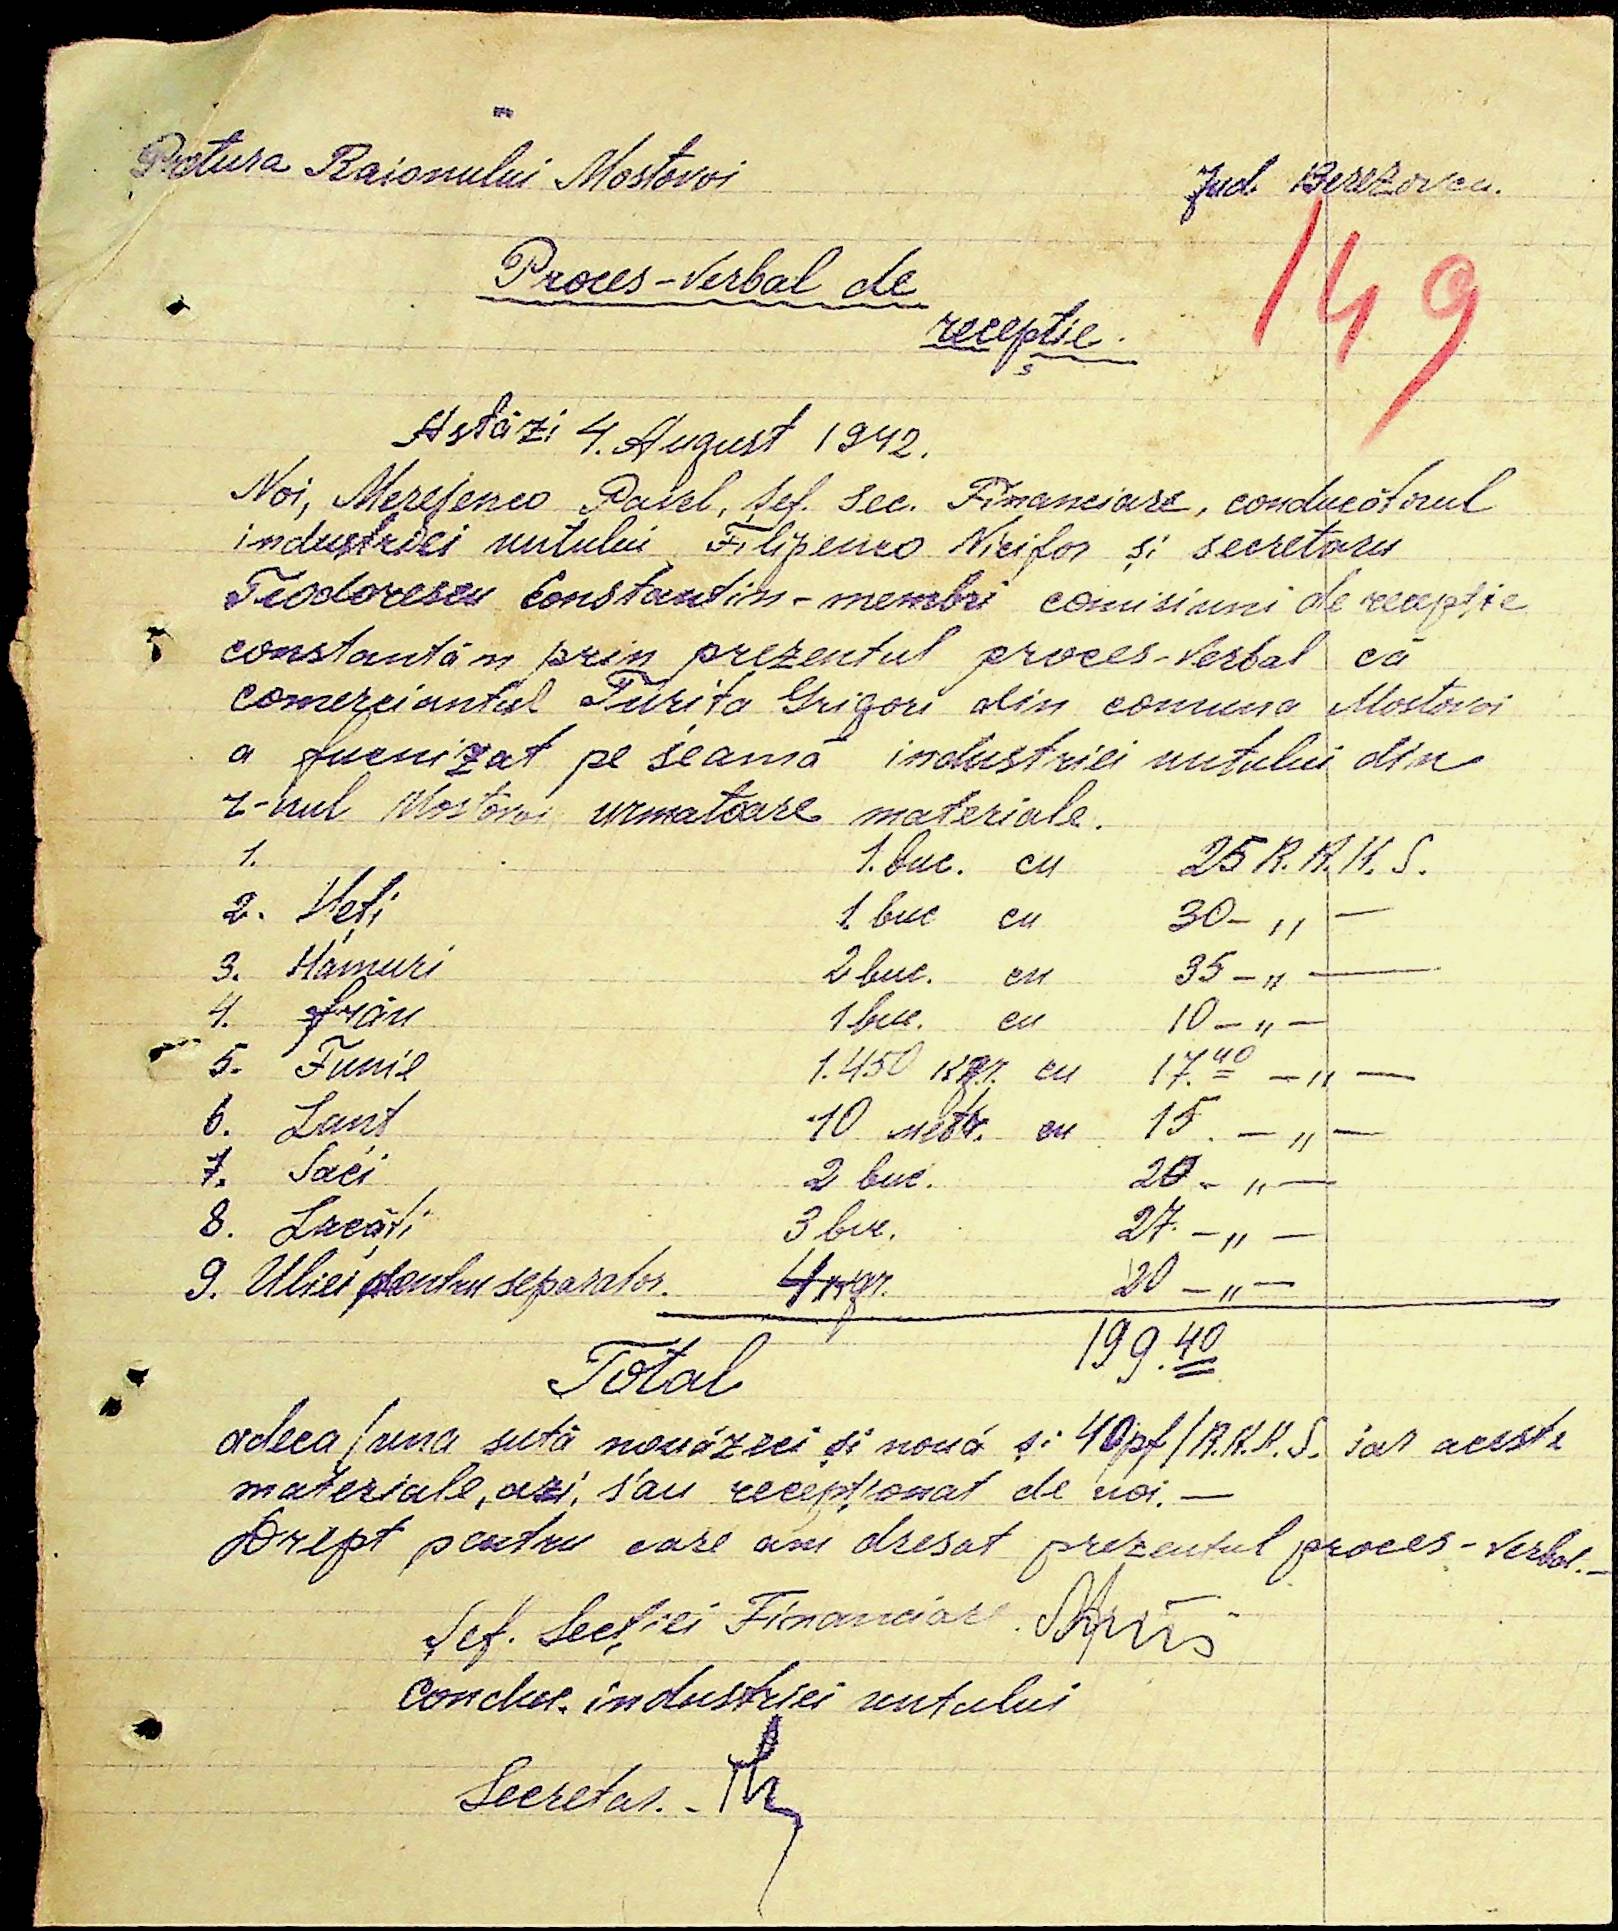 Pretura Raionului Mostovoi
Jud. Berezovca.
149
Proces-Verbal de
recepție.
Astăzi 4. August 1942.
Noi, Merejenco Pavel, șef. sec. Financiare, conducătorul
industriei untului Filipenco Nicifor și secretaru
Teodorescu Constantin - membri comisiuni de recepție
constantăm prin prezentul proces-Verbal că
comerciantul Turița Grigori din comuna Mostovoi
a furnizat pe seamă industriei untului din
r-nul Mostovoi urmatoare materiale.
1. 1. buc. cu 25 R.K.K.S.
2. 1. buc cu 30 - „ —
3. Hamuri 2 buc. cu 35 - „ —
4. frău 1 buc. cu 10 - „ —
5. Funie 1.450 kgr. cu 17.40 - „ —
6. Lanț 10 metr. cu 15. - „ —
7. Saci 2 buc. 20 - „ —
8. Lacăți 3 buc. 27. - „ —
9. Uliei pentru separator. 4 kgr. 20 - „ —
Total 199.40
adeca / una sută nouăzeci și nouă și 40 pf / R.K.K.S. iar aceste
materiale, azi, s'au recepționat de noi. —
Drept pentru care am dresat prezentul proces-Verbal. —
Șef. Secției Financiare.
Conduc. industriei untului
Secretar. -